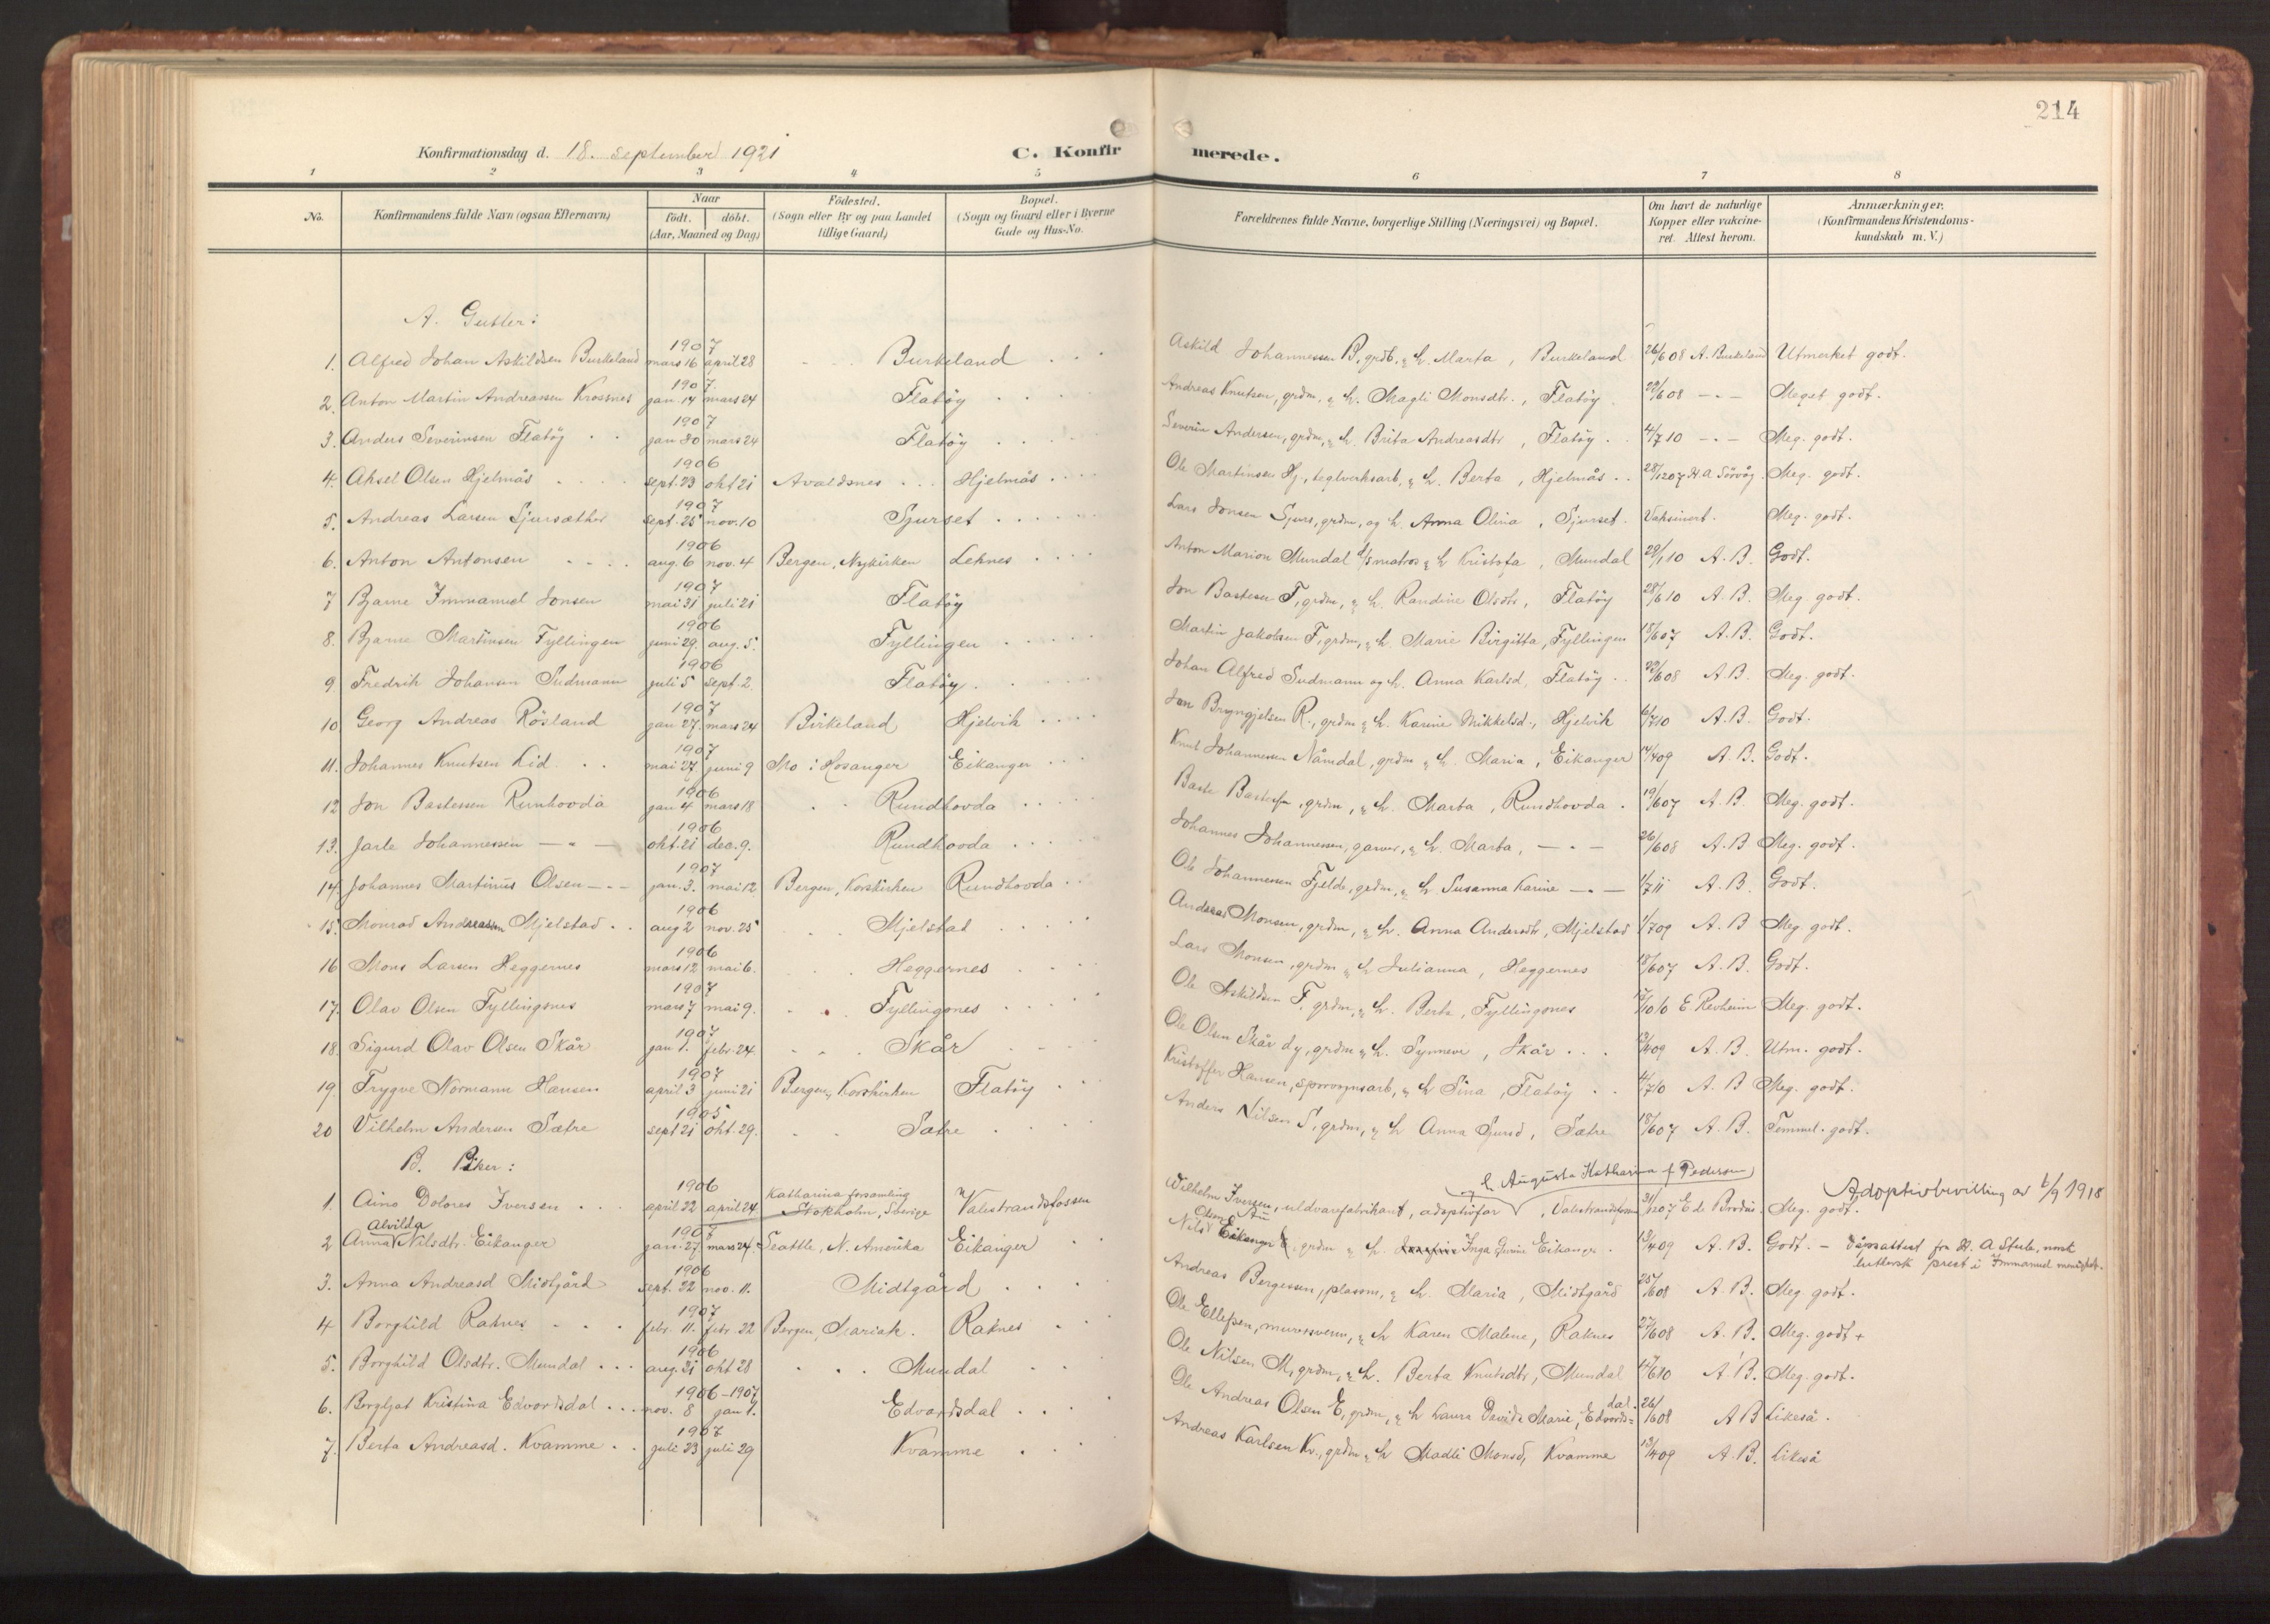 214
Konfirmationsdag d. 18. september 1921 C. Konfirmerede.
1 2 3 4 5 6 7 8
No. Konfirmandens fulde Navn (ogsaa Efternavn) Naar födt. döbt. (Aar, Maaned og Dag) Födested. (Sogn eller By og paa Landet tillige Gaard) Bopæl. (Sogn og Gaard eller i Byerne Gade og Hus-No. Forældrenes fulde Navne, borgerlige Stilling (Næringsvei) og Bopæl. Om havt de naturlige Kopper eller vakcineret. Attest herom. Anmærkninger. (Konfirmandens Kristendomskundskab m. V.)
A. Gutter:
1907
1. Alfred Johan Askildsen Burkeland mars 16 april 28 Burkeland Askild Johannessen B, grdb. & h. Marta, Burkeland 26/6 08 A. Burkeland Utmerket godt.
1907.
2. Anton Martin Andreassen Krossnes jan. 14 mars 24 Flatöy Andreas Knutsen, grdm. & h. Magli Monsdtr., Flatöy 29/6 08 - " - Meget godt.
1907
3. Anders Severinsen Flatöy jan 30 mars 24 Flatöy Severin Andersen, grdm, & h. Brita Andreasdtr, Flatöy 4/7 10 - " - Meg. godt.
1906
4. Aksel Olsen Hjelmås sept. 23 okt 21 Avaldsnes Hjelmås Ole Martinsen Hj., teglverksarb, & h. Berta, Hjelmås 28/12 07 H. A Sörvåg Meg. godt.
1907
5. Andreas Larsen Sjursæther sept. 25 nov. 10 Sjurset Lars Jonsen Sjurs, grdm, og h. Anna Olina, Sjurset. Vaksinert. Meg. godt.
1906
6. Anton Antonsen aug. 6 nov. 4 Bergen, Nykirken Leknes Anton Marion Mundal d/s matros & h Kristofa, Mundal 29/1 10 A. B. Godt.
1907
7 Bjarne Immanuel Jonsen mai 31 juli 21 Flatöy Jon Bastesen F, grdm, & h. Randine Olsdtr, Flatöy 28/6 10 A. B. Meg. godt.
1906
8. Bjarne Martinsen Fyllingen juni 29. aug. 5. Fyllingen Martin Jakobsen F, grdm, & h. Marie Birgitta, Fyllingen 15/6 07 A. B. Godt.
1906
9. Fredrik Johansen Sudmann juli 5 sept. 2. Flatöy. Johan Alfred Sudmann og h. Anna Karlsd, Flatöy 29/6 08 A. B. Meg. godt.
1907
10. Georg Andreas Rösland jan 27. mars 24 Birkeland Hjelvik Jon Bryngjelsen R., grdm & h. Karine Mikkelsd., Hjelvik 6/7 10 A. B. Godt.
1907
11. Johannes Knutsen Lid mai 27. juni 9 Mo i Hosanger Eikanger Knut Johannessen Nåmdal, grdm & h. Maria, Eikanger 14/4 09 A. B. Godt.
1906
12 Jon Bastessen Runhovda jan 4 mars 18 Rundhovda Baste Bastesen, grdm, & h. Marta, Rundhovda 19/6 07 A. B. Meg. godt.
1906
13. Jarle Johannessen — " — okt. 21 des. 9. Rundhovda Johannes Johannessen, garver, & h. Marta, — " — 26/6 08 A. B Meg. godt.
1907
14. Johannes Martinus Olsen — " — jan. 3. mai 12 Bergen, Korskirken Rundhovda Ole Johannessen Fjelde, grdm, & h Susanna Karine — " — 1/7 11 A. B. Godt.
1906
15. Monrad Andreassen Mjelstad aug 2 nov. 25 Mjelstad Andreas Monsen, grdm, & h. Anna Andersdtr, Mjelstad 1/7 09 A. B Meg. godt.
1906
16 Mons Larsen Heggernes mars 12 mai 6. Heggernes Lars Monsen, grdm & h Julianna, Heggernes 18/6 07 A. B. Godt.
1907
17. Olav Olsen Fyllingsnes mars 7 mai 9. Fyllingsnes Ole Askildsen F, grdm, & h. Berta, Fyllingsnes 17/10 10 E. Revheim Meg. godt.
1907
18. Sigurd Olav Olsen Skår jan 1. febr. 24. Skår Ole Olsen Skår dy, grdm & h. Synneve, Skår 13/4 09 A. B. Utm. godt.
1907
19. Trygve Normann Hansen april 3 juni 21 Bergen, Korskirken Flatöy Kristoffer Hansen, sporvognsarb, & h Sina, Flatöy 4/7 10 A. B Meg. godt.
1905
20 Vilhelm Andersen Sætre sept 21 okt. 29. Sætre Anders Nilsen S, grdm, & h Anna Sjursd, Sætre 18/6 07 A. B. Temmel. godt.
B. Piker:
h. Augusta Katharina f Pedersen
1906
1. Aino Dolores Iversen april 22 april 24. Katharina forsamling Stokholm, Sverige Valestrandsfossen Vilhelm Iversen, uldvarefabrikant, adoptivfar, Valestrandsfossen 31/12 07 E de Brodin Meg. godt. Adoptivbevilling av 6/9 1918
1907
2 Anna Alvilda Nilsdtr. Eikanger jan. 27 mars 24. Seattle, N. Amerika Eikanger Nils Olsen Eikanger, grdm & h. Inga Eikanger 13/4 09 A. B. Godt. – Dåpsattest fra H. A Stub, norsk luthersk prest i Immanuel menighet.
1906
3. Anna Andreasd Midtgård sept. 22 nov. 11. Midtgård Andreas Bergesen, plassm, & h. Maria, Midtgård 25/6 08 A. B. Meg. godt.
1907
4 Borghild Raknes febr. 11. febr. 22 Bergen, Mariak. Raknes Ole Ellefsen, murersvenn, & h Karen Malene, Raknes 27/6 08 A. B. Meg. godt +
1906
5. Borghild Olsdtr. Mundal aug. 31 okt 28 Mundal Ole Nilsen M, grdm, & h. Berta Knutsdtr, Mundal 6 10 A. B. Meg. godt.
1906-1907
6. Bergljot Kristina Edvardsdal nov. 8 jan 1. Edvardsdal Ole Andreas Olsen E, grdm, & h Laura Davida Marie, Edvardsdal 26/6 08 A B Likeså.
1907
7. Berta Andreasd. Kvamme juli 23 juli 29 Kvamme Andreas Karlsen Kv., grdm & h Madli Monsd, Kvamme 13/4 09 A. B. Likeså